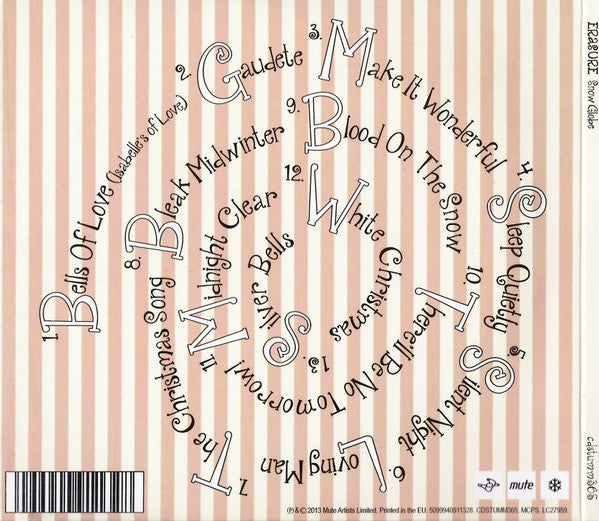 1. Bells Of Love (Isabelle's of Love)
2. Gaudete
3. Make It Wonderful
4. Sleep Quietly
5. Silent Night
6. Loving Man
7. The Christmas Song
8. Bleak Midwinter
9. Blood On The Snow
10. There'll Be No Tomorrow!
11. Midnight Clear
12. White Christmas
13. Silver Bells
ERASURE Snow Globe
cdstumm365
mute
℗ & © 2013 Mute Artists Limited. Printed in the EU. 5099940911328. CDSTUMM365. MCPS. LC27959.